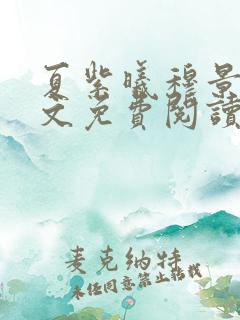 夏紫曦穆景
文免費閱讀
麦克纳特
未经同意禁止转载